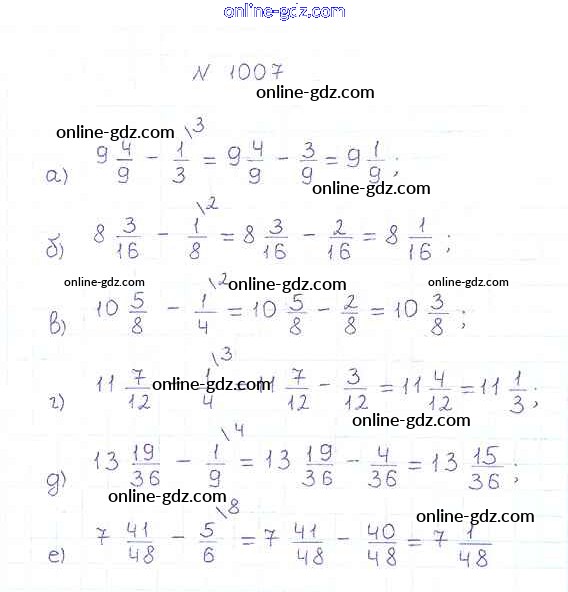 online-gdz.com
N 1007
online-gdz.com
online-gdz.com
а) 9 4/9 - 1/3 \3 = 9 4/9 - 3/9 = 9 1/9;
online-gdz.com
б) 8 3/16 - 1/8 \2 = 8 3/16 - 2/16 = 8 1/16;
online-gdz.com online-gdz.com online-gdz.com
в) 10 5/8 - 1/4 \2 = 10 5/8 - 2/8 = 10 3/8;
online-gdz.com
г) 11 7/12 - 1/4 \3 = 11 7/12 - 3/12 = 11 4/12 = 11 1/3;
online-gdz.com
д) 13 19/36 - 1/9 \4 = 13 19/36 - 4/36 = 13 15/36;
online-gdz.com
online-gdz.com
е) 7 41/48 - 5/6 \8 = 7 41/48 - 40/48 = 7 1/48